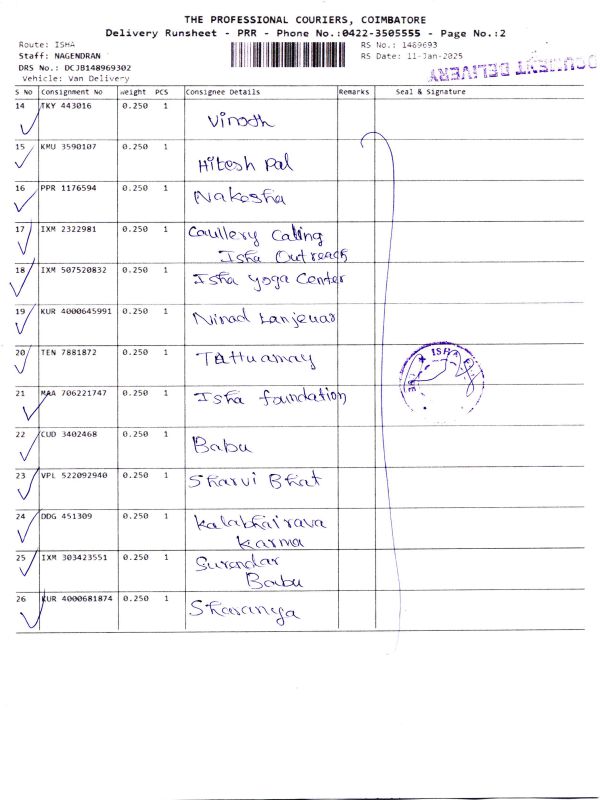 THE PROFESSIONAL COURIERS, COIMBATORE
Delivery Runsheet - PRR - Phone No.:0422-3505555 - Page No.:2
Route: ISHA
Staff: NAGENDRAN
DRS No.: DCJB148969302
Vehicle: Van Delivery
RS No.: 1489693
RS Date: 11-Jan-2025
DOCUMENT DELIVERY
S No Consignment No Weight PCS Consignee Details Remarks Seal & Signature
14 TKY 443016 0.250 1 Vinoth
15 KMU 3590107 0.250 1 Hitesh Pal
16 PPR 1176594 0.250 1 Nakosha
17 IXM 2322981 0.250 1 Caullery Cating
Isha Outreach
18 IXM 507520832 0.250 1 Isha Yoga Center
19 KUR 4000645991 0.250 1 Ninad Lanjewar
20 TEN 7881872 0.250 1
21 MAA 706221747 0.250 1 Isha foundation
22 CUD 3402468 0.250 1 Babu
23 VPL 522092940 0.250 1 Sharvi Bhat
24 DDG 451309 0.250 1 Kalabhairava
Karma
25 IXM 303423551 0.250 1 Surendar
Babu
26 KUR 4000681874 0.250 1 Sharanya
ISHA